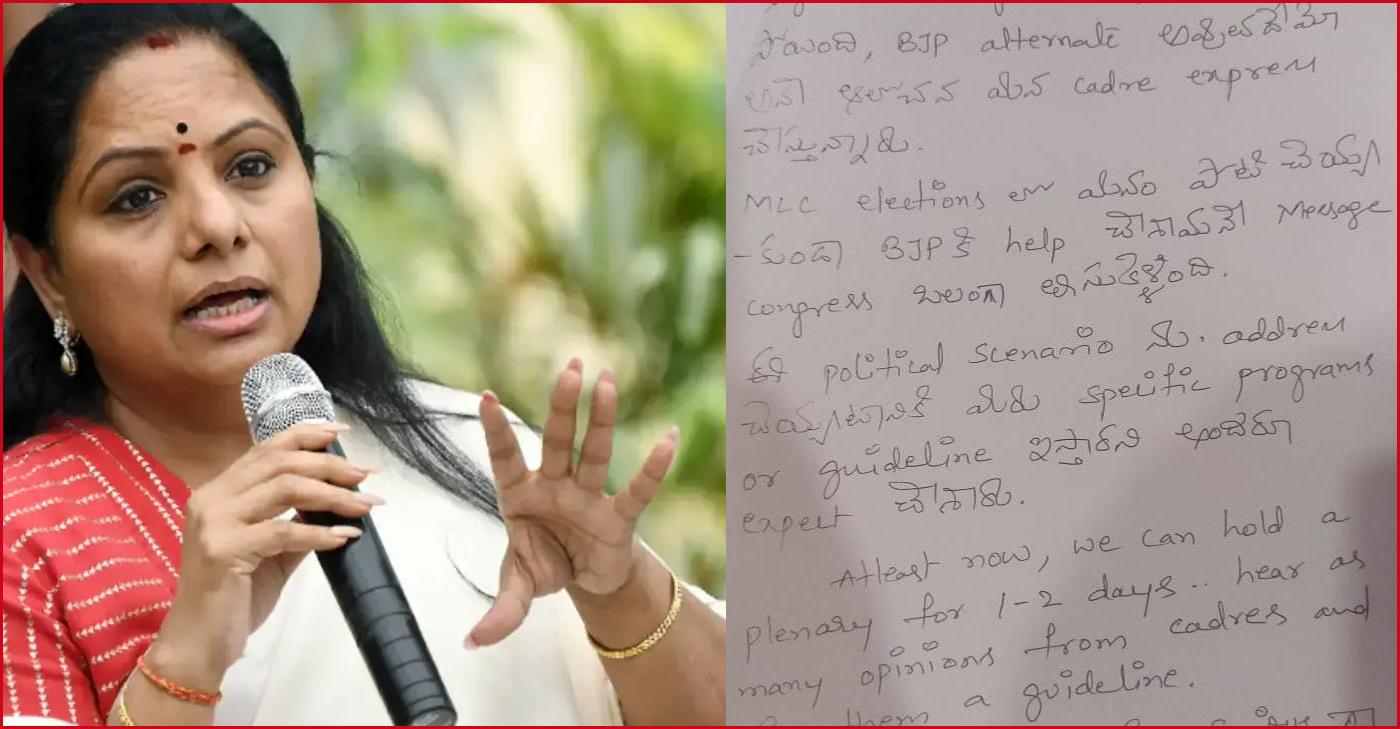 పోయింది, BJP alternate అవుతుందేమో
అనే ఆలోచన మన cadre express
చేస్తున్నారు.
MLC elections లో మనం పోటీ చెయ్య
-కుండా BJPకి help చేశామనే Message
congress బలంగా తీసుకెళ్ళింది.
ఈ political scenario ను. address
చెయ్యటానికి మీరు specific programs
or guideline ఇస్తారని అందరూ
expect చేశారు.
Atleast now, we can hold a
plenary for 1-2 days.. hear as
many opinions from cadres and
them a guideline.